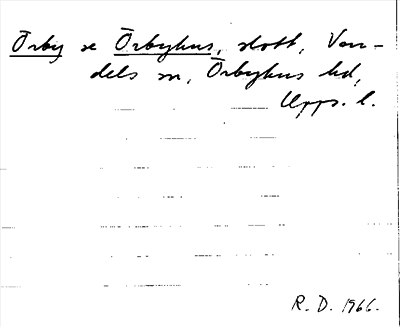 Örby se Örbyhus, slott, Ven-
dels sn, Örbyhus hd,
Upps. l.
R. D. 1966.